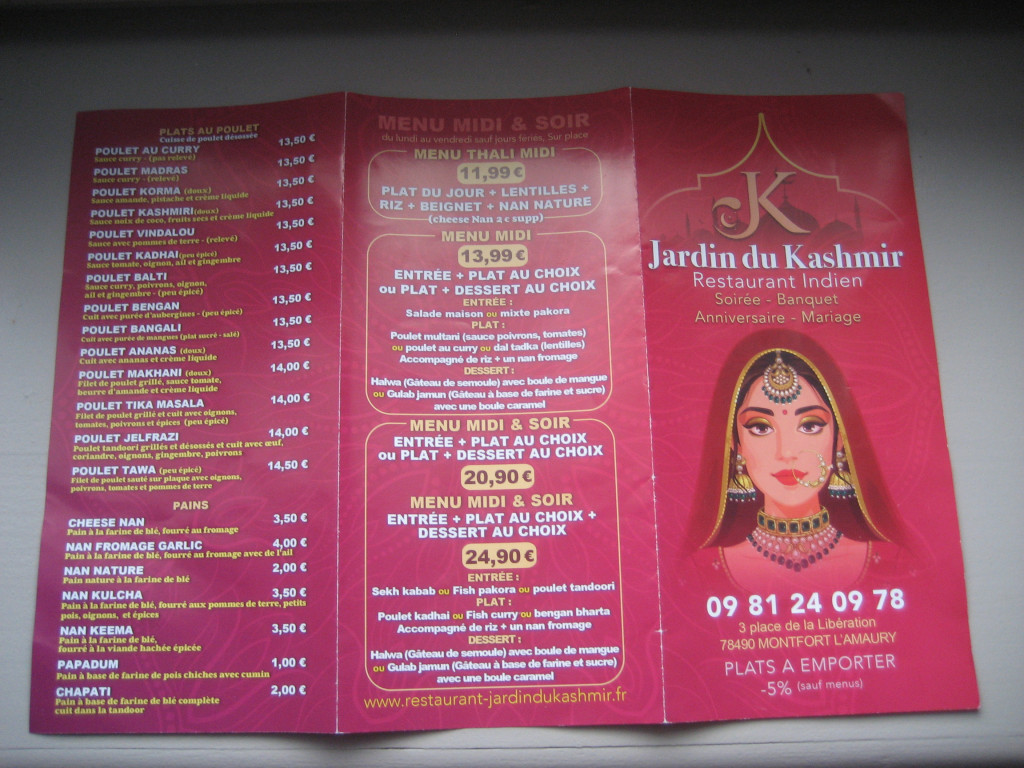 PLATS AU POULET
Cuisse de poulet désossée
POULET AU CURRY 13,50 €
Sauce curry - (pas relevé)
POULET MADRAS 13,50 €
Sauce curry - (relevé)
POULET KORMA (doux) 13,50 €
Sauce amande, pistache et crème liquide
POULET KASHMIRI (doux) 13,50 €
Sauce noix de coco, fruits secs et crème liquide
POULET VINDALOU 13,50 €
Sauce avec pommes de terre - (relevé)
POULET KADHAI (peu épicé) 13,50 €
Sauce tomate, oignon, ail et gingembre
POULET BALTI 13,50 €
Sauce curry, poivrons, oignon,
ail et gingembre - (peu épicé)
POULET BENGAN 13,50 €
Cuit avec purée d'aubergines - (peu épicé)
POULET BANGALI 13,50 €
Cuit avec purée de mangues (plat sucré - salé)
POULET ANANAS (doux) 13,50 €
Cuit avec ananas et crème liquide
POULET MAKHANI (doux) 14,00 €
Filet de poulet grillé, sauce tomate,
beurre d'amande et crème liquide
POULET TIKA MASALA 14,00 €
Filet de poulet grillé et cuit avec oignons,
tomates, poivrons et épices (peu épicé)
POULET JELFRAZI 14,00 €
Poulet tandoori grillés et désossés et cuit avec œuf,
coriandre, oignons, gingembre, poivrons
POULET TAWA (peu épicé) 14,50 €
Filet de poulet sauté sur plaque avec oignons,
poivrons, tomates et pommes de terre
PAINS
CHEESE NAN 3,50 €
Pain à la farine de blé, fourré au fromage
NAN FROMAGE GARLIC 4,00 €
Pain à la farine de blé, fourré au fromage avec de l'ail
NAN NATURE 2,00 €
Pain nature à la farine de blé
NAN KULCHA 3,50 €
Pain à la farine de blé, fourré aux pommes de terre, petits
pois, oignons, et épices
NAN KEEMA 3,50 €
Pain à la farine de blé,
fourré à la viande hachée épicée
PAPADUM 1,00 €
Pain à base de farine de pois chiches avec cumin
CHAPATI 2,00 €
Pain à base de farine de blé complète
cuit dans la tandoor
MENU MIDI & SOIR
du lundi au vendredi sauf jours fériés, Sur place
MENU THALI MIDI
11,99 €
PLAT DU JOUR + LENTILLES +
RIZ + BEIGNET + NAN NATURE
(cheese Nan 2 € supp)
MENU MIDI
13,99 €
ENTRÉE + PLAT AU CHOIX
ou PLAT + DESSERT AU CHOIX
ENTRÉE :
Salade maison ou mixte pakora
PLAT :
Poulet multani (sauce poivrons, tomates)
ou poulet au curry ou dal tadka (lentilles)
Accompagné de riz + un nan fromage
DESSERT :
Halwa (Gâteau de semoule) avec boule de mangue
ou Gulab jamun (Gâteau à base de farine et sucre)
avec une boule caramel
MENU MIDI & SOIR
ENTRÉE + PLAT AU CHOIX
ou PLAT + DESSERT AU CHOIX
20,90 €
MENU MIDI & SOIR
ENTRÉE + PLAT AU CHOIX +
DESSERT AU CHOIX
24,90 €
ENTRÉE :
Sekh kabab ou Fish pakora ou poulet tandoori
PLAT :
Poulet kadhai ou Fish curry ou bengan bharta
Accompagné de riz + un nan fromage
DESSERT :
Halwa (Gâteau de semoule) avec boule de mangue
ou Gulab jamun (Gâteau à base de farine et sucre)
avec une boule caramel
www.restaurant-jardindukashmir.fr
K
Jardin du Kashmir
Restaurant Indien
Soirée - Banquet
Anniversaire - Mariage
09 81 24 09 78
3 place de la Libération
78490 MONTFORT L'AMAURY
PLATS A EMPORTER
-5% (sauf menus)